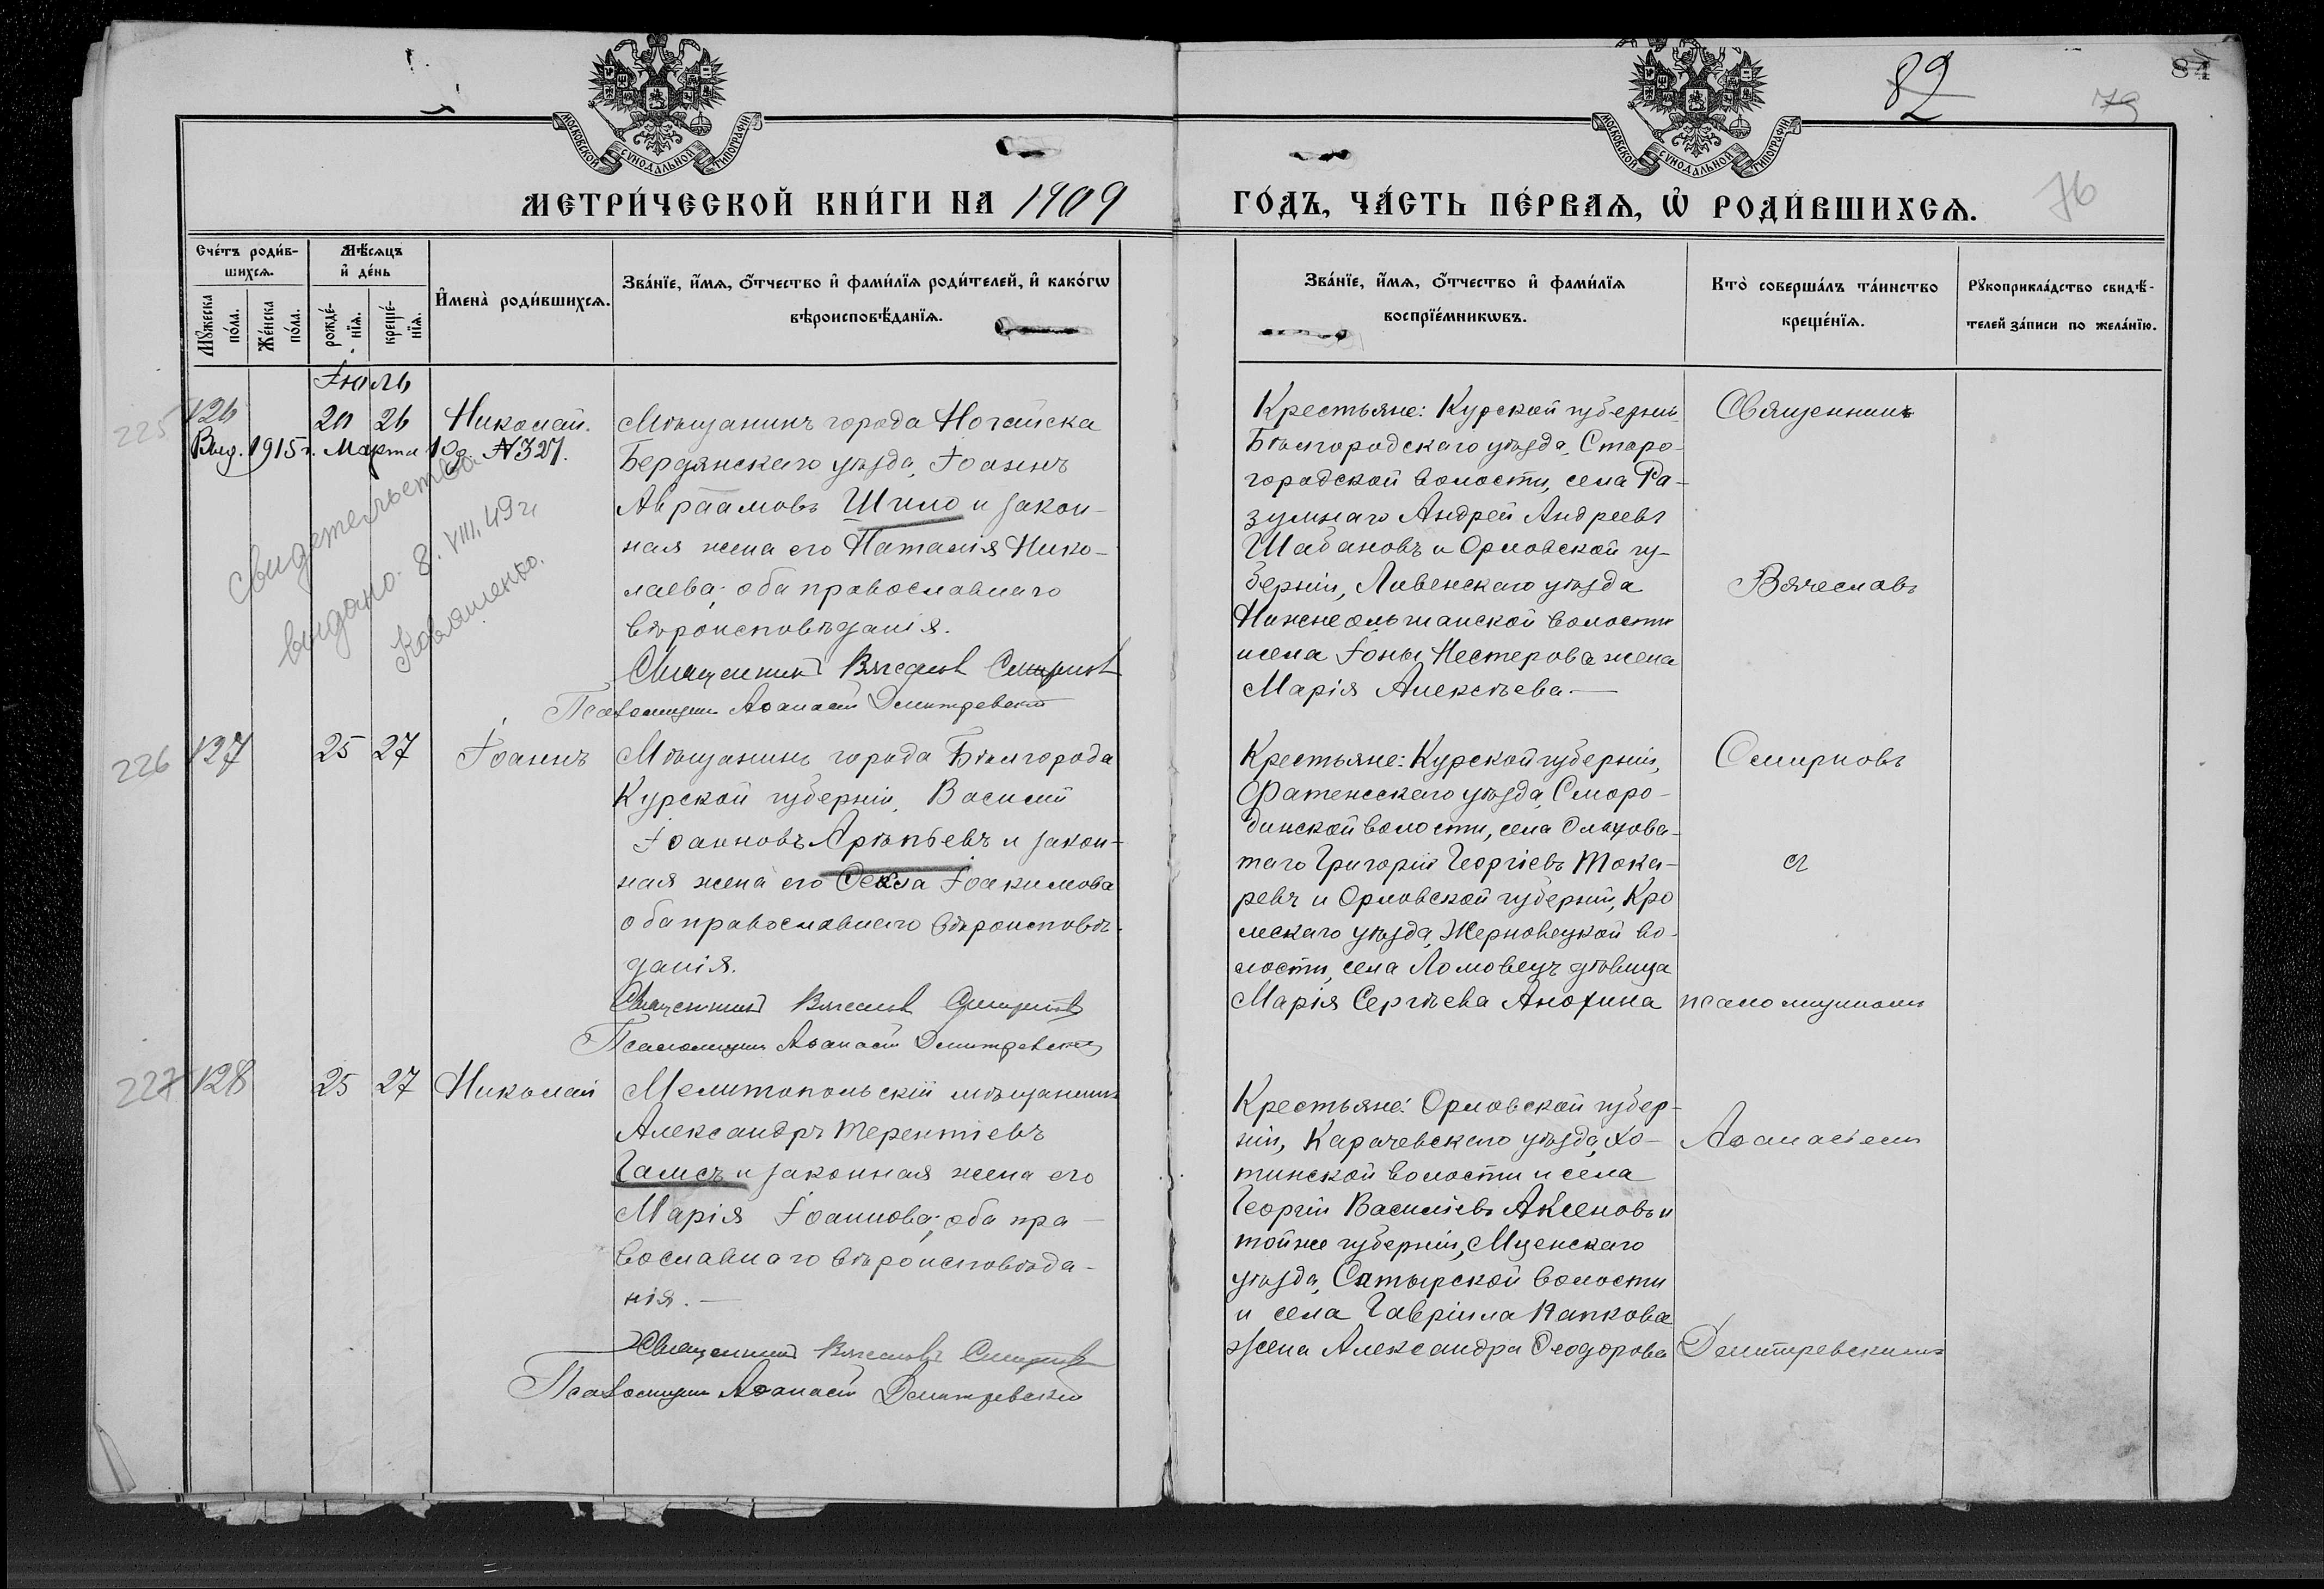 82
84
79
76
МОСКОВСКОЙ СѴНОДАЛЬНОЙ ТИПОГРАФІИ
МОСКОВСКОЙ СѴНОДАЛЬНОЙ ТИПОГРАФІИ
МЕТРИ́ЧЕСКОЙ КНИ́ГИ НА 1909
ГО́ДЪ, ЧА́СТЬ ПЕ́РВАѦ, Ѡ҆ РОДИ́ВШИХСѦ.
Сче́тъ роди́в-
шихсѧ.
Мꙋ́жеска по́ла.
Же́нска по́ла.
Мѣ́сѧцъ
и҆ де́нь
рожде́-
нїѧ.
креще́-
нїѧ.
И҆мена̀ роди́вшихсѧ.
Зва́нїе, и҆́мѧ, ѻ҆́тчество и҆ фами́лїѧ роди́телей, и҆ како́гѡ
вѣроисповѣ́данїѧ.
Зва́нїе, и҆́мѧ, ѻ҆́тчество и҆ фами́лїѧ
воспрїе́мникѡвъ.
Кто̀ соверша́лъ та́инство
креще́нїѧ.
Рꙋкоприкла́дство свидѣ́-
телей за́писи по жела́нїю.
Іюль
225
126
20 26
Николай.
Выд. 1915 г. Марта 10 д. №327.
свидетельство
выдано. 8. VIII. 49 г.
Мѣщанинъ города Ногайска
Бердянскаго уѣзда, Іоаннъ
Авраамовъ Шило и закон-
ная жена его Наталія Нико-
лаева; оба православнаго
вѣроисповѣданія.
Священникъ Вячеслав Смирнов
Псаломщикъ Аѳанасій Димитревскій
Крестьяне: Курской губерніи
Бѣлгородскаго уѣзда, Старо-
городской волости, села Ра-
зумнаго Андрей Андреевъ
Шабановъ и Орловской гу-
берніи, Ливенскаго уѣзда
Нижнеольшанской волости
и села Іоны Нестерова жена
Марія Алексѣева.—
Священникъ
Вячеславъ
226
127
25 27
Іоаннъ
Мѣщанинъ города Бѣлгорода
Курской губерніи, Василій
Іоанновъ Арѣпьевъ и закон-
ная жена его Ѳекла Іоакимова
оба православнаго вѣроисповѣ-
данія.
Священникъ Вячеслав Смирнов
Псаломщикъ Аѳанасій Димитревскій
Крестьяне: Курской губерніи,
Фатежскаго уѣзда, Сморо-
динской волости, села Ольхова-
таго Григорій Георгіевъ Тока-
ревъ и Орловской губерніи, Кро
мскаго уѣзда, Жерновецкой во-
лости, села Ломовецъ дѣвица
Марія Сергѣева Анохина
Смирновъ
съ
псаломщикомъ
227
128
25 27
Николай
Мелитопольскій мѣщанинъ
Александръ Терентіевъ
Галисъ и законная жена его
Марія Іоаннова; оба пра-
вославнаго вѣроисповѣда-
нія.—
Священникъ Вячеславъ Смирнов
Псаломщикъ Аѳанасій Димитревскій
Крестьяне: Орловской губер-
ніи, Карачевскаго уѣзда, Хо-
тинской волости и села
Георгій Василіевъ Аксеновъ и
той же губерніи, Мценскаго
уѣзда, Сатырской волости
и села Гавріила Папкова
жена Александра Ѳеодорова
Аѳанасіемъ
Димитревскимъ